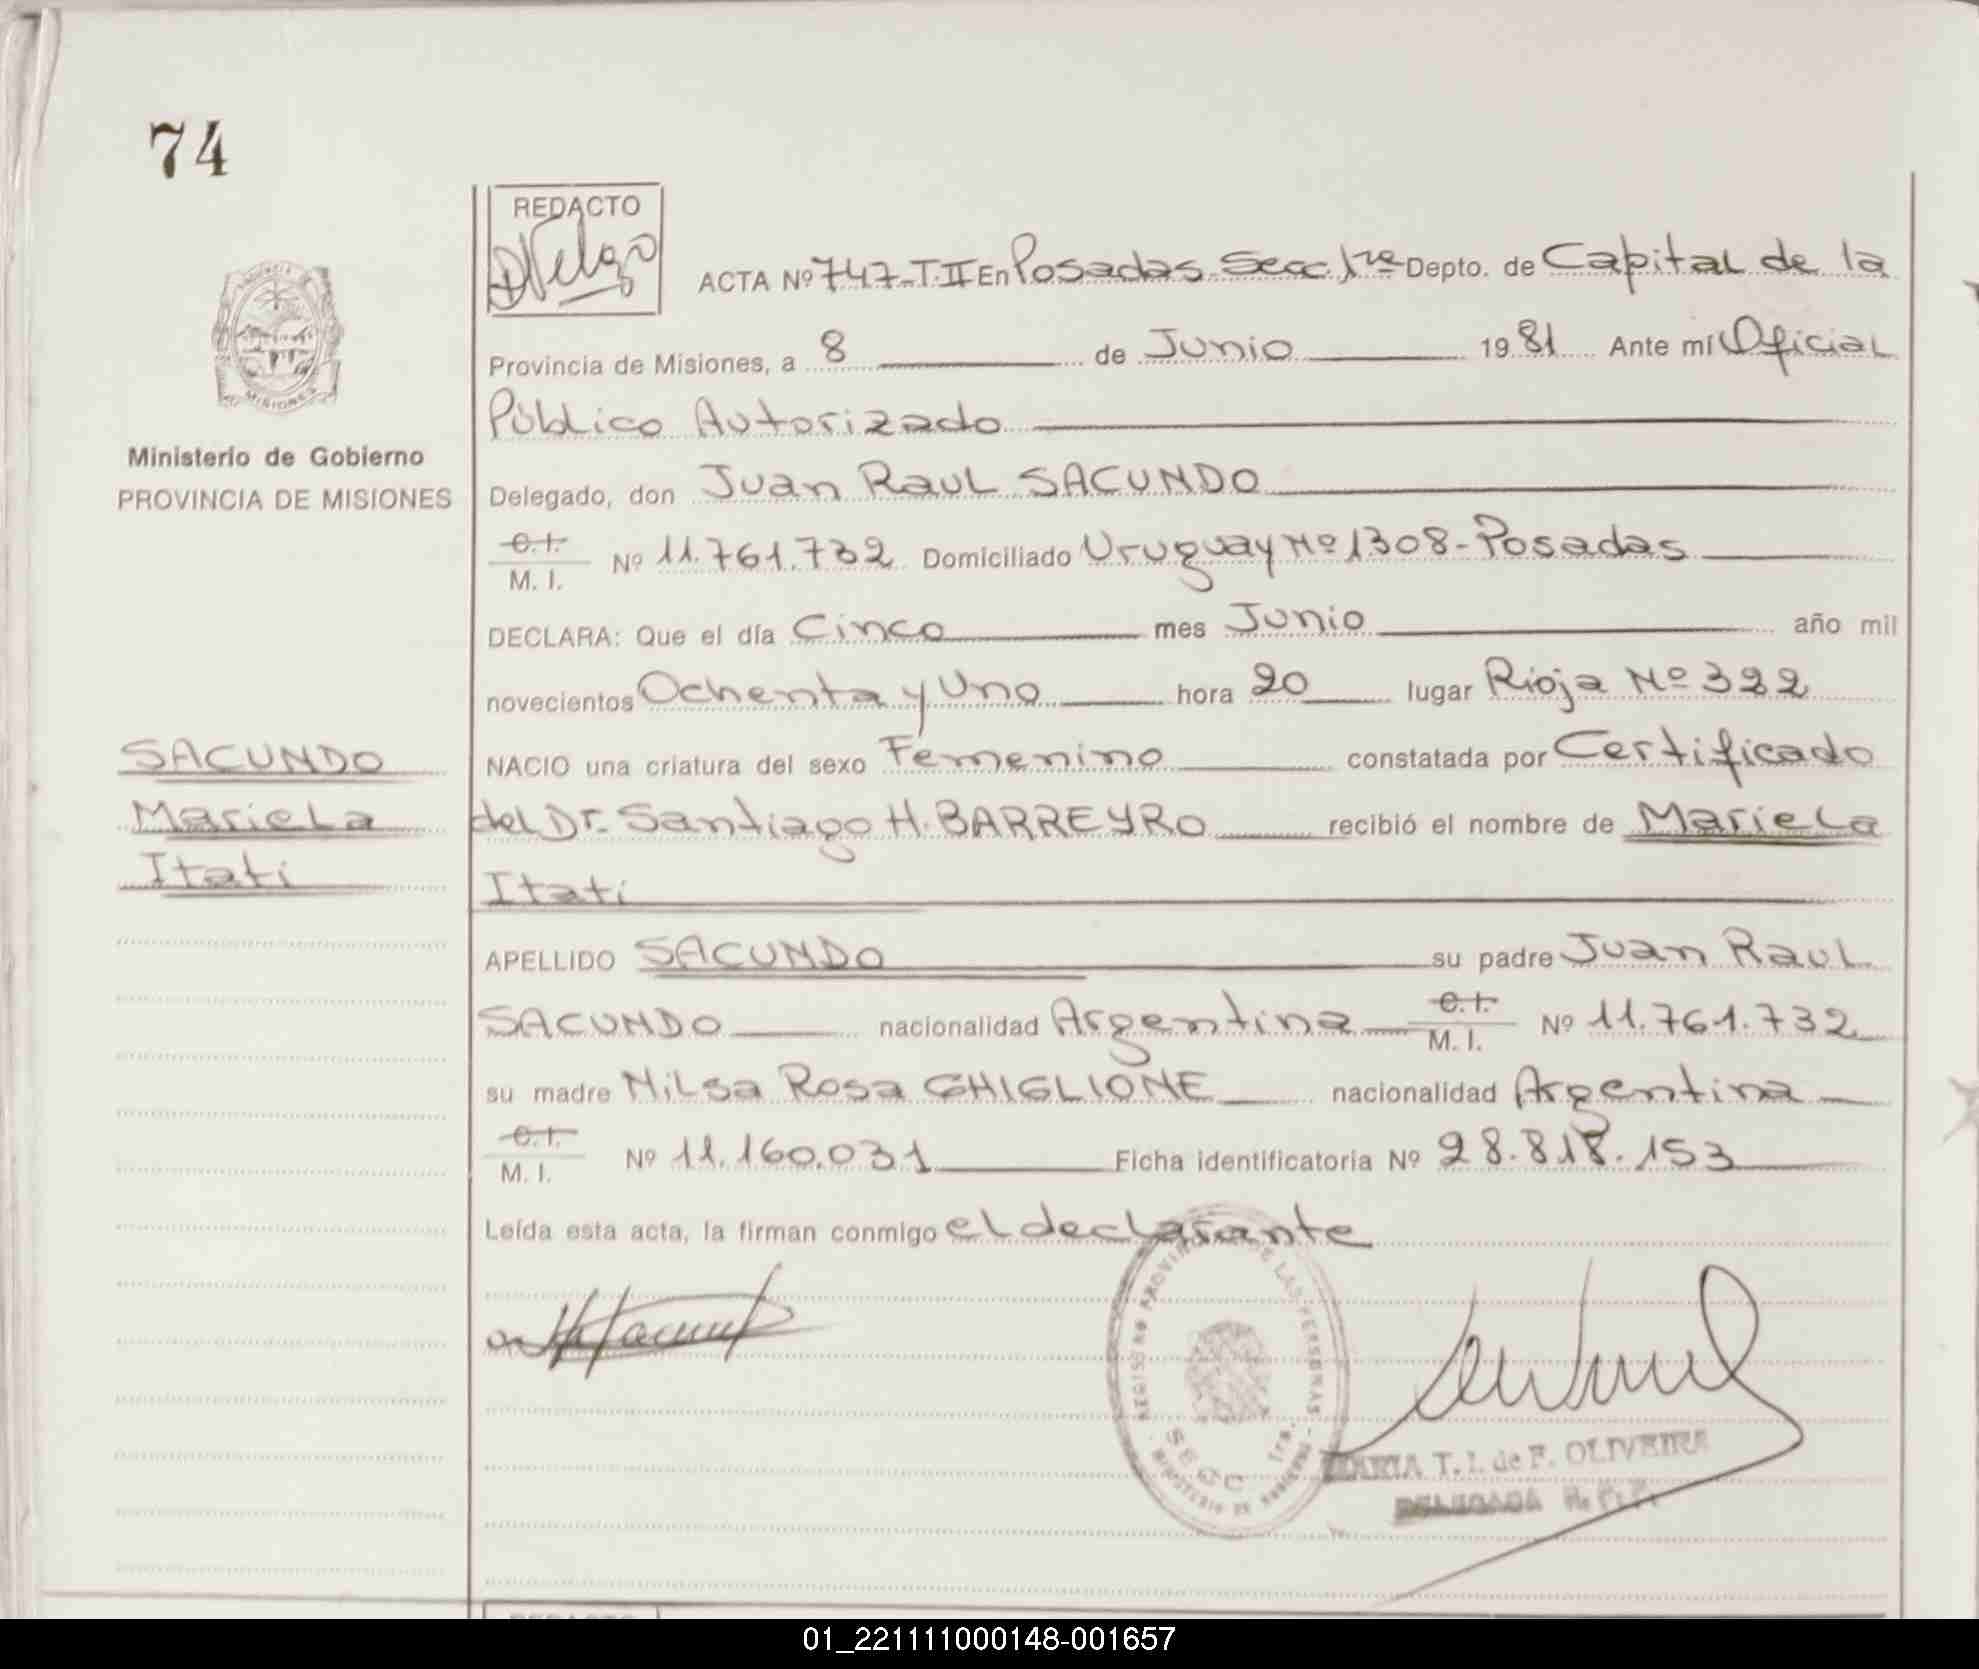 74
REDACTO
ACTA Nº 747-T.II En Posadas Secc. 1ra Depto. de Capital de la
Provincia de Misiones, a 8 de Junio 1981 Ante mí Oficial
Público Autorizado
Ministerio de Gobierno
PROVINCIA DE MISIONES
Delegado, don Juan Raul SACUNDO
C.I.
M. I. Nº 11.761.732 Domiciliado Uruguay Nº 1308-Posadas
DECLARA: Que el día Cinco mes Junio año mil
novecientos Ochenta y Uno hora 20 lugar Rioja Nº 322
SACUNDO
Mariela
Itatí
NACIO una criatura del sexo Femenino constatada por Certificado
del Dr. Santiago H. BARREYRO recibió el nombre de Mariela
Itatí
APELLIDO SACUNDO su padre Juan Raul
SACUNDO nacionalidad Argentina C.I. M. I. Nº 11.761.732
su madre Nilsa Rosa GHIGLIONE nacionalidad Argentina
C.I.
M. I. Nº 11.160.031 Ficha identificatoria Nº 28.818.153
Leída esta acta, la firman conmigo el declarante
REGISTRO PROVINCIAL DE LAS PERSONAS
SECC. 1ra.
MINISTERIO DE GOBIERNO
MARIA T. I. de F. OLIVEIRA
DELEGADA R. P. P.
REDACTO
01_221111000148-001657